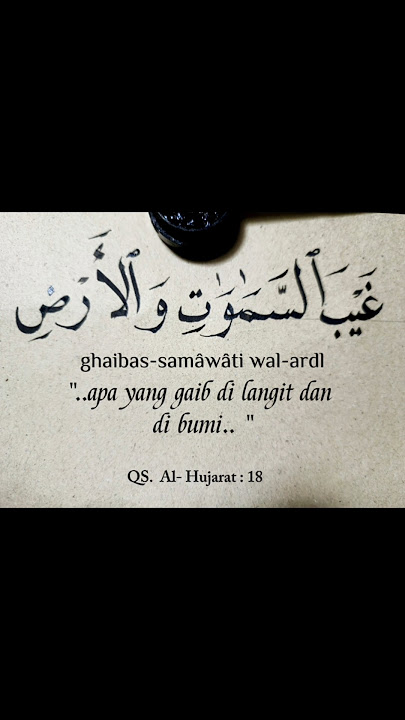 غَيْبَ ٱلسَّمَٰوَٰتِ وَٱلْأَرْضِ
ghaibas-samâwâti wal-ardl
"..apa yang gaib di langit dan
di bumi.. "
QS. Al- Hujarat : 18